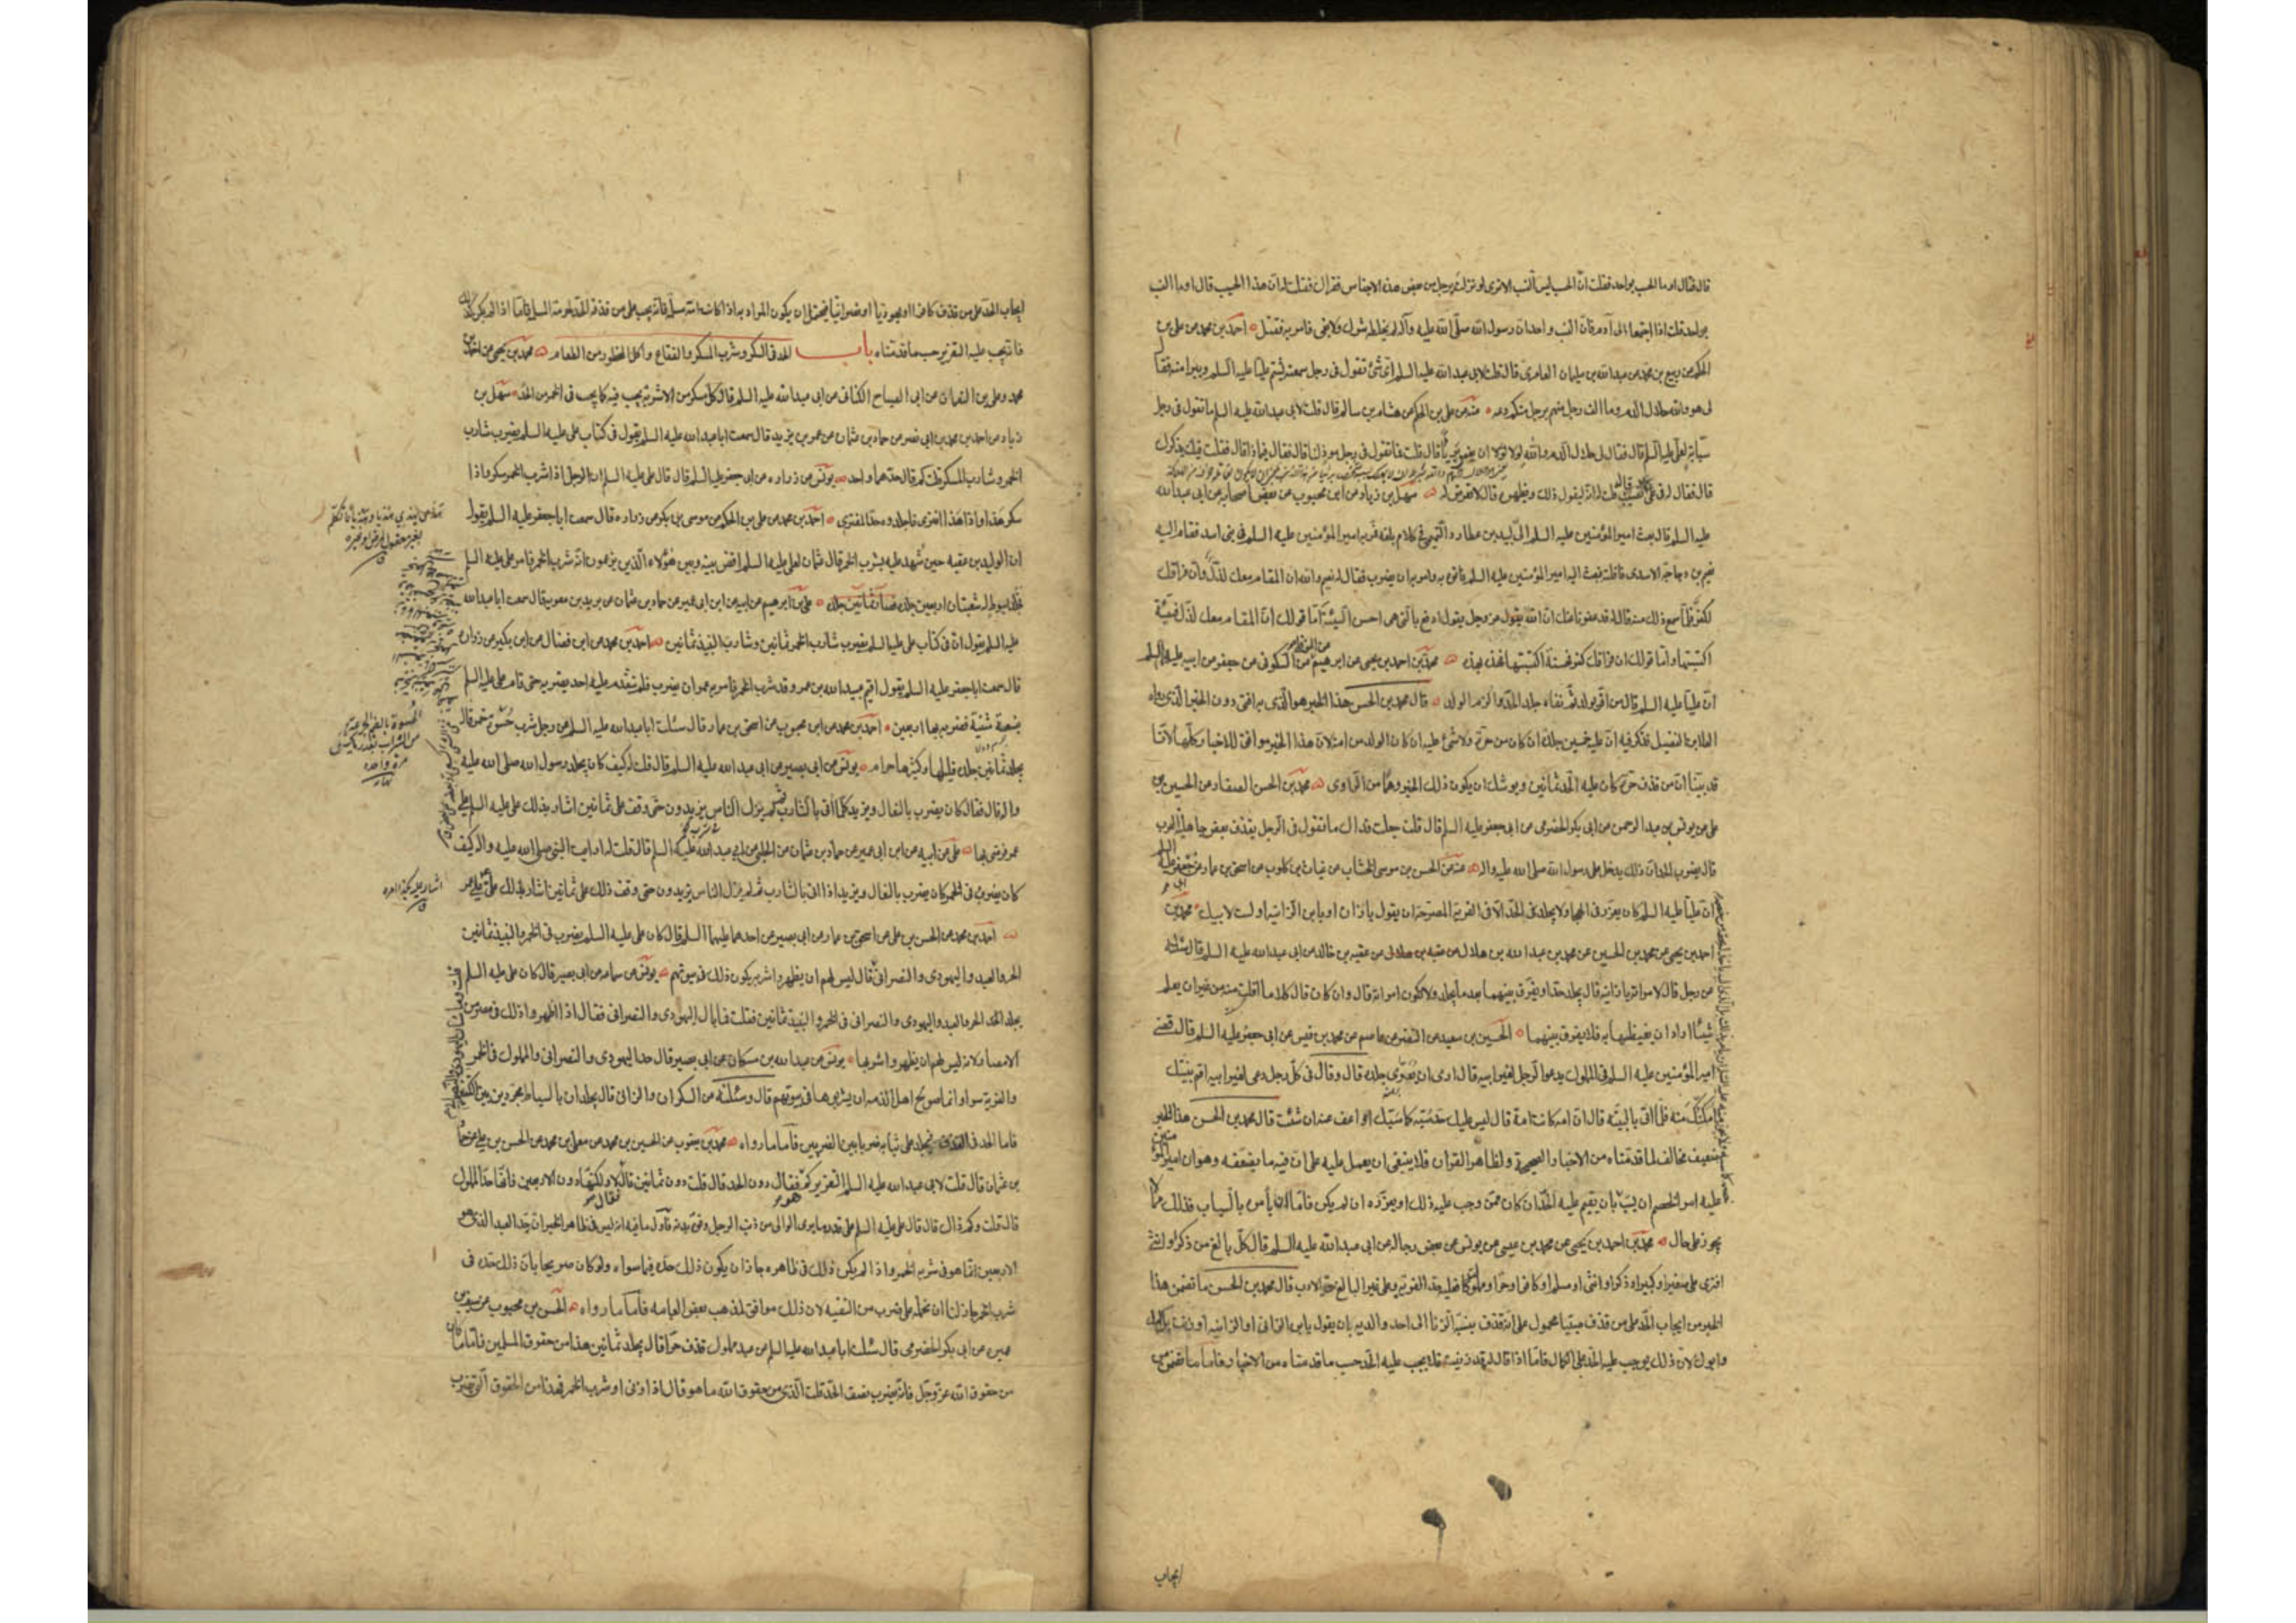 قال فقال اوما الحسب بواحد فقلت ان الحسب ليس النسب الا ترى لو نزلت برجل من بعض هذه الاجناس فقراك فقلت له ان هذا الحسيب قال اوما النسب
بواحد قلت اذا اجتمعا الى آدم فان النسب واحد ان رسول الله صلى الله عليه وآله لم يخلطه شرك ولا بغى فامر به فقتل احمد بن محمد عن على بن
الحكم عن ربيع بن محمد عن عبد الله بن سليمان العامرى قال قلت لابى عبد الله عليه السلم اى شئ تقول فى رجل سمعته يشتم عليا عليه السلم ويبرا منه فقا
لى هو والله حلال الدم وما الف رجل منهم برجل منكم دعه عنه عن على بن الحكم عن هشام بن سالم قال قلت لابى عبد الله عليه السلم ما تقول فى رجل
سبابة لعلى عليه السلم قال فقال لى حلال الدم والله لولا ان يعم بريئا قال قلت فما تقول فى رجل موذ لنا قال فقال فيماذا قال فقلت فيك يذكرك
قال فقال له فى على نصيب قلت انه ليقول ذلك ويظهره قال لا تعرض له سهل بن زياد عن ابن محبوب عن بعض اصحابه عن ابى عبد الله
عليه السلم قال بعث امير المؤمنين عليه السلم الى لبيد بن عطارد التميمى فى كلام بلغه فمر به امير المؤمنين عليه السلم فى بنى اسد فقام اليه
نعيم بن دجاجة الاسدى فافلته فبعث اليه امير المؤمنين عليه السلم فاتى به وامر به ان يضرب فقال له نعيم والله ان المقام معك لذل وان فراقك
لكفر فلما سمع ذلك منه قال له قد عفونا عنك ان الله يقول عز وجل يقول ادفع بالتى هى احسن السيئة اما قولك ان المقام معك لذل فسيئة
اكتسبتها واما قولك ان فراقك كفر فحسنة اكتسبتها فهذه بهذه محمد بن احمد بن يحيى عن ابرهيم عن السكونى عن جعفر عن ابيه عليهما السلم
ان عليا عليه السلم قال من اقر بولد ثم نفاه جلد الحد والزم الولد قال محمد بن الحسن هذا الخبر هو الذى به افتى دون الخبر الذى رواه
العلا بن الفضيل فذكر فيه ان عليه خمسين جلدة ان كان من حرة ولا شئ عليه ان كان الولد من امة لان هذا الخبر موافق للاخبار كلها لانا
قد بينا ان من قذف حرة كان عليه الحد ثمانين ويوشك ان يكون ذلك الخبر وهما من الراوى محمد بن الحسن الصفار عن الحسين بن
على عن يونس بن عبد الرحمن عن ابى بكر الحضرمى عن ابى جعفر عليه السلم قال قلت جعلت فداك ما تقول فى الرجل يقذف بعض جاهلية العرب
قال يضرب الحد ان ذلك يدخل على رسول الله صلى الله عليه واله عنه عن الحسن بن موسى الخشاب عن غياث بن كلوب عن اسحق بن عمار عن جعفر عليه السلم
ان عليا عليه السلم كان يعزر فى الهجا ولا يجلد فى الحد الا فى الفرية المصرحة ان يقول يا زان او يا بن الزانية او لست لابيك محمد بن
احمد بن يحيى عن محمد بن الحسين عن محمد بن عبد الله بن هلال عن عقبه بن خالد عن ابى عبد الله عليه السلم قال سئلته
عن رجل قال لامراته يا زانية قال يجلد حدا ويفرق بينهما بعد ما يجلد ولا تكون امراته قال وان كان قال كلاما افلت منه من غير ان يعلم
شيئا اراد ان يغيظها به فلا يفرق بينهما الحسين بن سعيد عن النضر عن عاصم عن محمد بن قيس عن ابى جعفر عليه السلم قال قضى
امير المؤمنين عليه السلم فى المملوك يدعو الرجل لغير ابيه قال ارى ان يعرى جلده قال وقال فى كل رجل دعى لغير ابيه اقم بينتك
امكنك منه فلما اتى بالبينة قال ان امه كانت امة قال ليس عليك حد سبه كما سبك او اعف عنه ان شئت قال محمد بن الحسن هذا الخبر
ضعيف مخالف لما قدمناه من الاخبار الصحيحة ولظاهر القران فلا ينبغى ان يعمل عليه على ان فيه ما يضعفه وهو ان امير المؤمنين
عليه امر الخصم ان يسبه بان يقيم عليه الحد ان كان ممن وجب عليه ذلك او يعزره ان لم يكن فاما ان يأمر بالسباب فذلك مما لا
يجوز على حال محمد بن احمد بن يحيى عن محمد بن عيسى عن يونس عن بعض رجاله عن ابى عبد الله عليه السلم قال كل بالغ من ذكر او انثى
افترى على صغير او كبير او ذكر او انثى او مسلم او كافر او حر او مملوك فعليه حد الفرية وعلى غير البالغ حد الادب قال محمد بن الحسن ما تضمن هذا
الخبر من ايجاب الحد على من قذف صبيا محمول على انه قذف بنسبة الزنا الى احد والديه بان يقول يا بن الزانى او الزانية او زنت بك امك
وابوك لان ذلك يوجب عليه الحد على الكمال فاما اذا قال له قد زنيت فلا يجب عليه الحد حسب ما قدمناه من الاخبار وفاما ما تضمن من
ايجاب
ايجاب الحد على من قذف كافرا او يهوديا او نصرانيا فيحتمل ان يكون المراد به اذا كانت امه مسلمة فانه يجب على من قذفه الحد لحرمة المسلم فاما اذا لم يكن كذلك
فانه يجب عليه التعزير حسب ما قدمناه باب الحد فى السكر وشرب المسكر والفقاع واكل المحظور من الطعام محمد بن يحيى عن احمد بن
محمد وعلى بن النعمان عن ابى الصباح الكنانى عن ابى عبد الله عليه السلم قال كل مسكر من الاشربة يجب فيه كما يجب فى الخمر من الحد سهل بن
زياد عن احمد بن محمد بن ابى نصر عن حماد بن عثمان عن عمر بن يزيد قال سمعت ابا عبد الله عليه السلم يقول فى كتاب على عليه السلم يضرب شارب
الخمر وشارب المسكر قلت كم قال حدهما واحد يونس عن زراره عن ابى جعفر عليه السلم قال قال على عليه السلم ان الرجل اذا شرب الخمر سكر واذا
سكر هذا واذا هذا افترى فاجلدوه حد المفترى احمد بن محمد عن على بن الحكم عن موسى بن بكر عن زراره قال سمعت ابا جعفر عليه السلم يقول
ان الوليد بن عقبه حين شهد عليه بشرب الخمر قال عثمان لعلى عليه السلم اقض بينه وبين هؤلاء الذين يزعمون انه شرب الخمر فامر على عليه السلم
فجلد بسوط له شعبتان اربعين جلدة فصارت ثمانين جلدة على بن ابرهيم عن ابيه عن ابن ابى عمير عن حماد بن عثمان عن بريد بن معويه قال سمعت ابا عبد الله
عليه السلم يقول ان فى كتاب على عليه السلم يضرب شارب الخمر ثمانين وشارب النبيذ ثمانين احمد بن محمد عن ابن فضال عن ابن بكير عن زراره
قال سمعت ابا جعفر عليه السلم يقول اقيم عبيد الله بن عمر وقد شرب الخمر فامر به عمر ان يضرب فلم يتقدم عليه احد يضربه حتى قام على عليه السلم
بنسعة مثنية فضربه بها اربعين احمد بن محمد عن ابن محبوب عن اسحق بن عمار قال سئلت ابا عبد الله عليه السلم عن رجل شرب حسوة خمر قال
يجلد ثمانين جلدة قليلها وكثيرها حرام يونس عن ابى بصير عن ابى عبد الله عليه السلم قال قلت له كيف كان يجلد رسول الله صلى الله عليه
واله قال فقال كان يضرب بالنعال ويزيد كلما اتى بالشارب ثم لم يزل الناس يزيدون حتى وقف على ثمانين اشار بذلك على عليه السلم على
عمر فرضى بها على عن ابيه عن ابن ابى عمير عن حماد بن عثمان عن الحلبى عن ابى عبد الله عليه السلم قال قلت له ارايت النبى صلى الله عليه واله كيف
كان يضرب فى الخمر كان يضرب بالنعال ويزيد اذا اتى بالشارب ثم لم يزل الناس يزيدون حتى وقف ذلك على ثمانين اشار بذلك على على عمر
احمد بن محمد عن الحسن بن على عن اسحق بن عمار عن ابى بصير عن احدهما عليهما السلم قال كان على عليه السلم يضرب فى الخمر والنبيذ ثمانين
الحر والعبد واليهودى والنصرانى قال ليس لهم ان يظهروا شربه يكون ذلك فى بيوتهم يونس عن سماعه عن ابى بصير قال كان على عليه السلم
يجلد الحد الحر والعبد واليهودى والنصرانى فى الخمر والنبيذ ثمانين فقلت فما بال اليهودى والنصرانى فقال اذا اظهروا ذلك فى مصر من
الامصار لانه ليس لهم ان يظهروا شربها يونس عن عبد الله بن مسكان عن ابى بصير قال حد اليهودى والنصرانى والمملوك فى الخمر
والفرية سوا وانما صولح اهل الذمه ان يشربوها فى بيوتهم قال وسئلته عن السكران والزانى قال يجلدان بالسياط مجردين بين الكتفين
فاما الحد فى القذف فيجلد على ثيابه ضربا بين الضربين فاما ما رواه محمد بن يعقوب عن الحسين بن محمد عن معلى بن محمد عن الحسن بن على عن حماد
بن عثمان قال قلت لابى عبد الله عليه السلم التعزير كم هو فقال دون الحد قال قلت دون ثمانين فقال لا ولكنها دون الاربعين فانها حد المملوك
قال قلت وكم ذاك قال قال على عليه السلم على قدر ما يرى الوالى من ذنب الرجل وقوة بدنه فاول ما فيه انه ليس فى ظاهر الخبر ان حد العبد الذى هو
الاربعين انما هو فى شربه الخمر واذا لم يكن ذلك فى ظاهره جاز ان يكون ذلك حده فيما سواه ولو كان صريحا بان ذلك حده فى
شرب الخمر جاز لنا ان نحمله على ضرب من التقيه لان ذلك موافق لمذهب بعض العامه فاما ما رواه الحسن بن محبوب عن سيف بن
عميره عن ابى بكر الحضرمى قال سئلت ابا عبد الله عليه السلم عن عبد مملوك قذف حرا قال يجلد ثمانين هذا من حقوق المسلمين فاما ما كان
من حقوق الله عز وجل فانه يضرب نصف الحد قلت الذى من حقوق الله ما هو قال اذا زنى او شرب الخمر فهذا من الحقوق التى يضرب
بغير معقول لمرض او غيره
الحسوة بالضم الجرعة
من الشراب بقدر ما يحسى
مرة واحدة
نهاية
اشار عليه بكذا امره